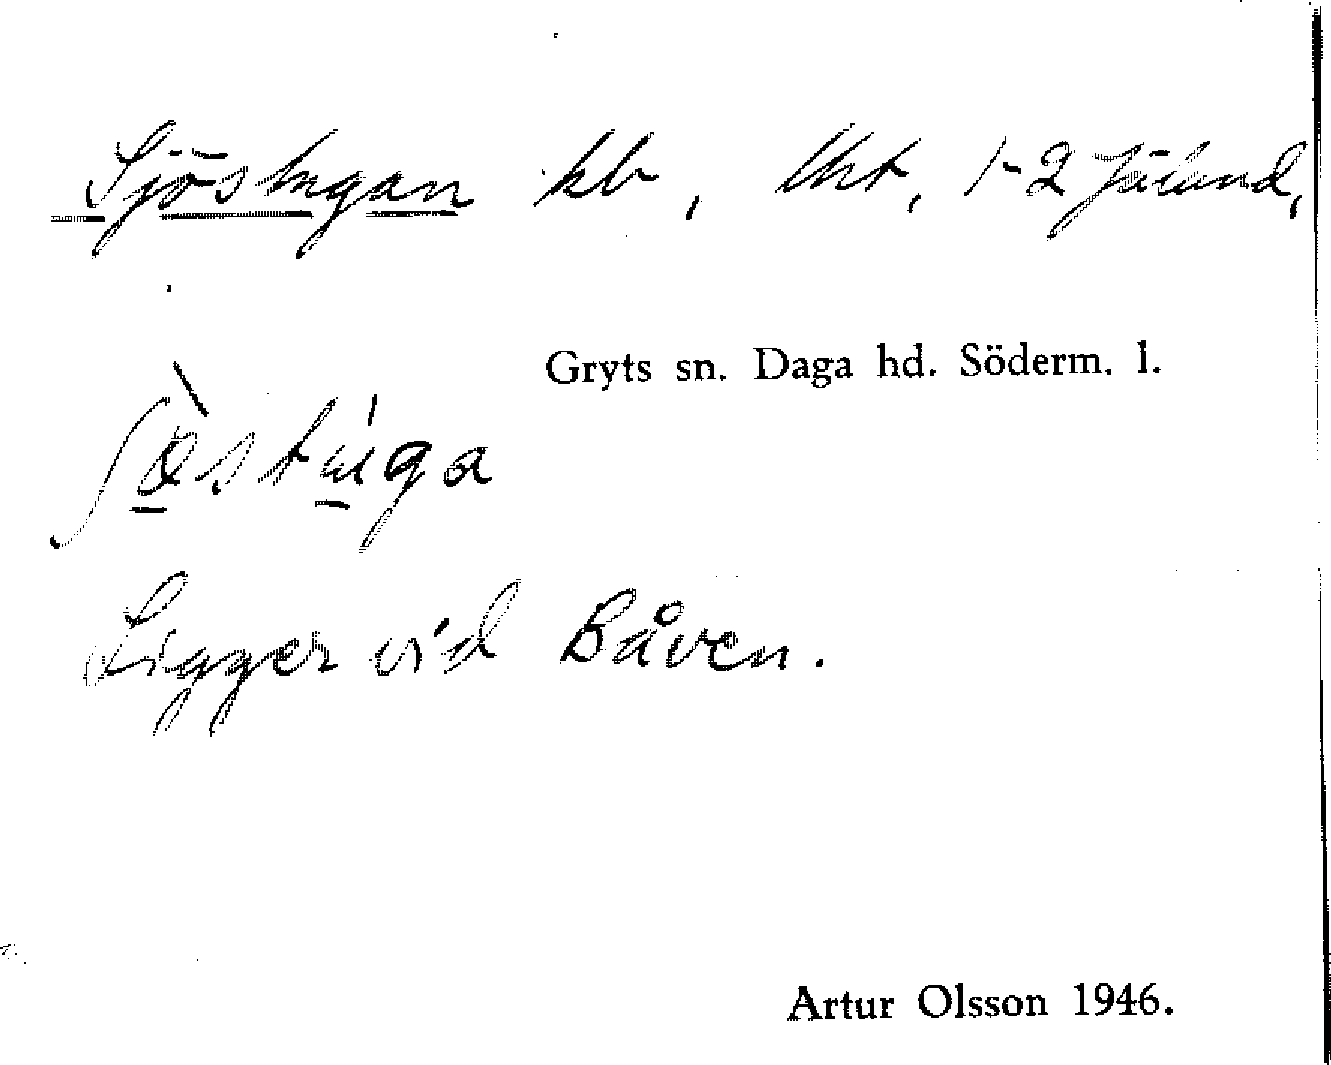 Sjöstugan kb, lht, 1-2 Jäland,
Gryts sn. Daga hd. Söderm. l.
Ligger vid Båven.
Artur Olsson 1946.